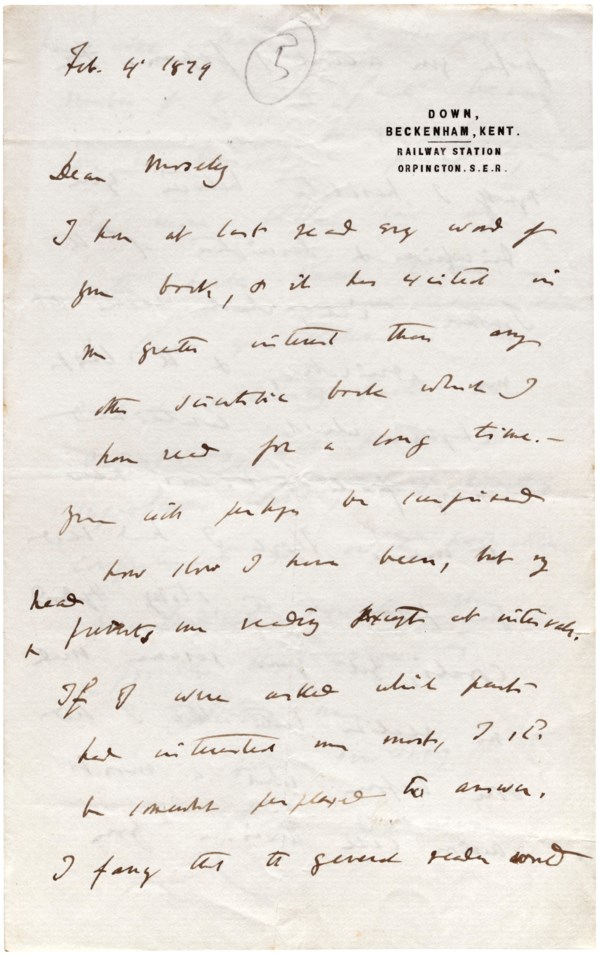 Feb. 4th 1879
5
DOWN,
BECKENHAM, KENT.
RAILWAY STATION
ORPINGTON. S.E.R.
Dear Moseley
I have at last read every word of
your book, & it has excited in
me greater interest than any
other scientific book which I
have read for a long time.—
You will perhaps be surprised
how slow I have been, but my
head
prevents me reading except at intervals.
If I were asked which parts
had interested me most, I shd
be somewhat perplexed to answer.
I fancy that the general reader would